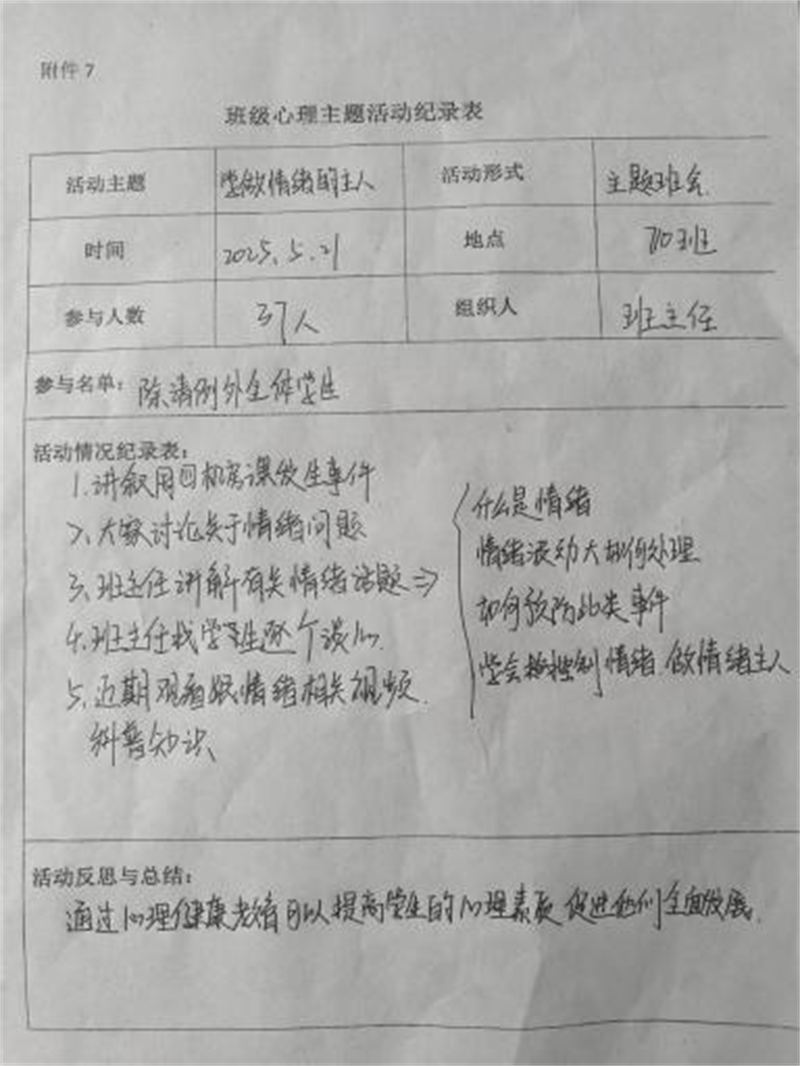 附件 7
班级心理主题活动纪录表
活动主题 学做情绪的主人 活动形式 主题班会
时间 2025.5.21 地点 710班
参与人数 37人 组织人 班主任
参与名单: 除请假外全体学生
活动情况纪录表:
1.讲叙用回机房课发生事件
2、大家讨论关于情绪问题
3、班主任讲解有关情绪话题⇒
4.班主任找学生逐个谈心.
5、近期观看娱情绪相关视频.
科普知识
什么是情绪
情绪波动大如何处理
如何预防此类事件
学会控制情绪.做情绪主人
活动反思与总结:
通过心理健康教育可以提高学生的心理素质,促进他们全面发展.